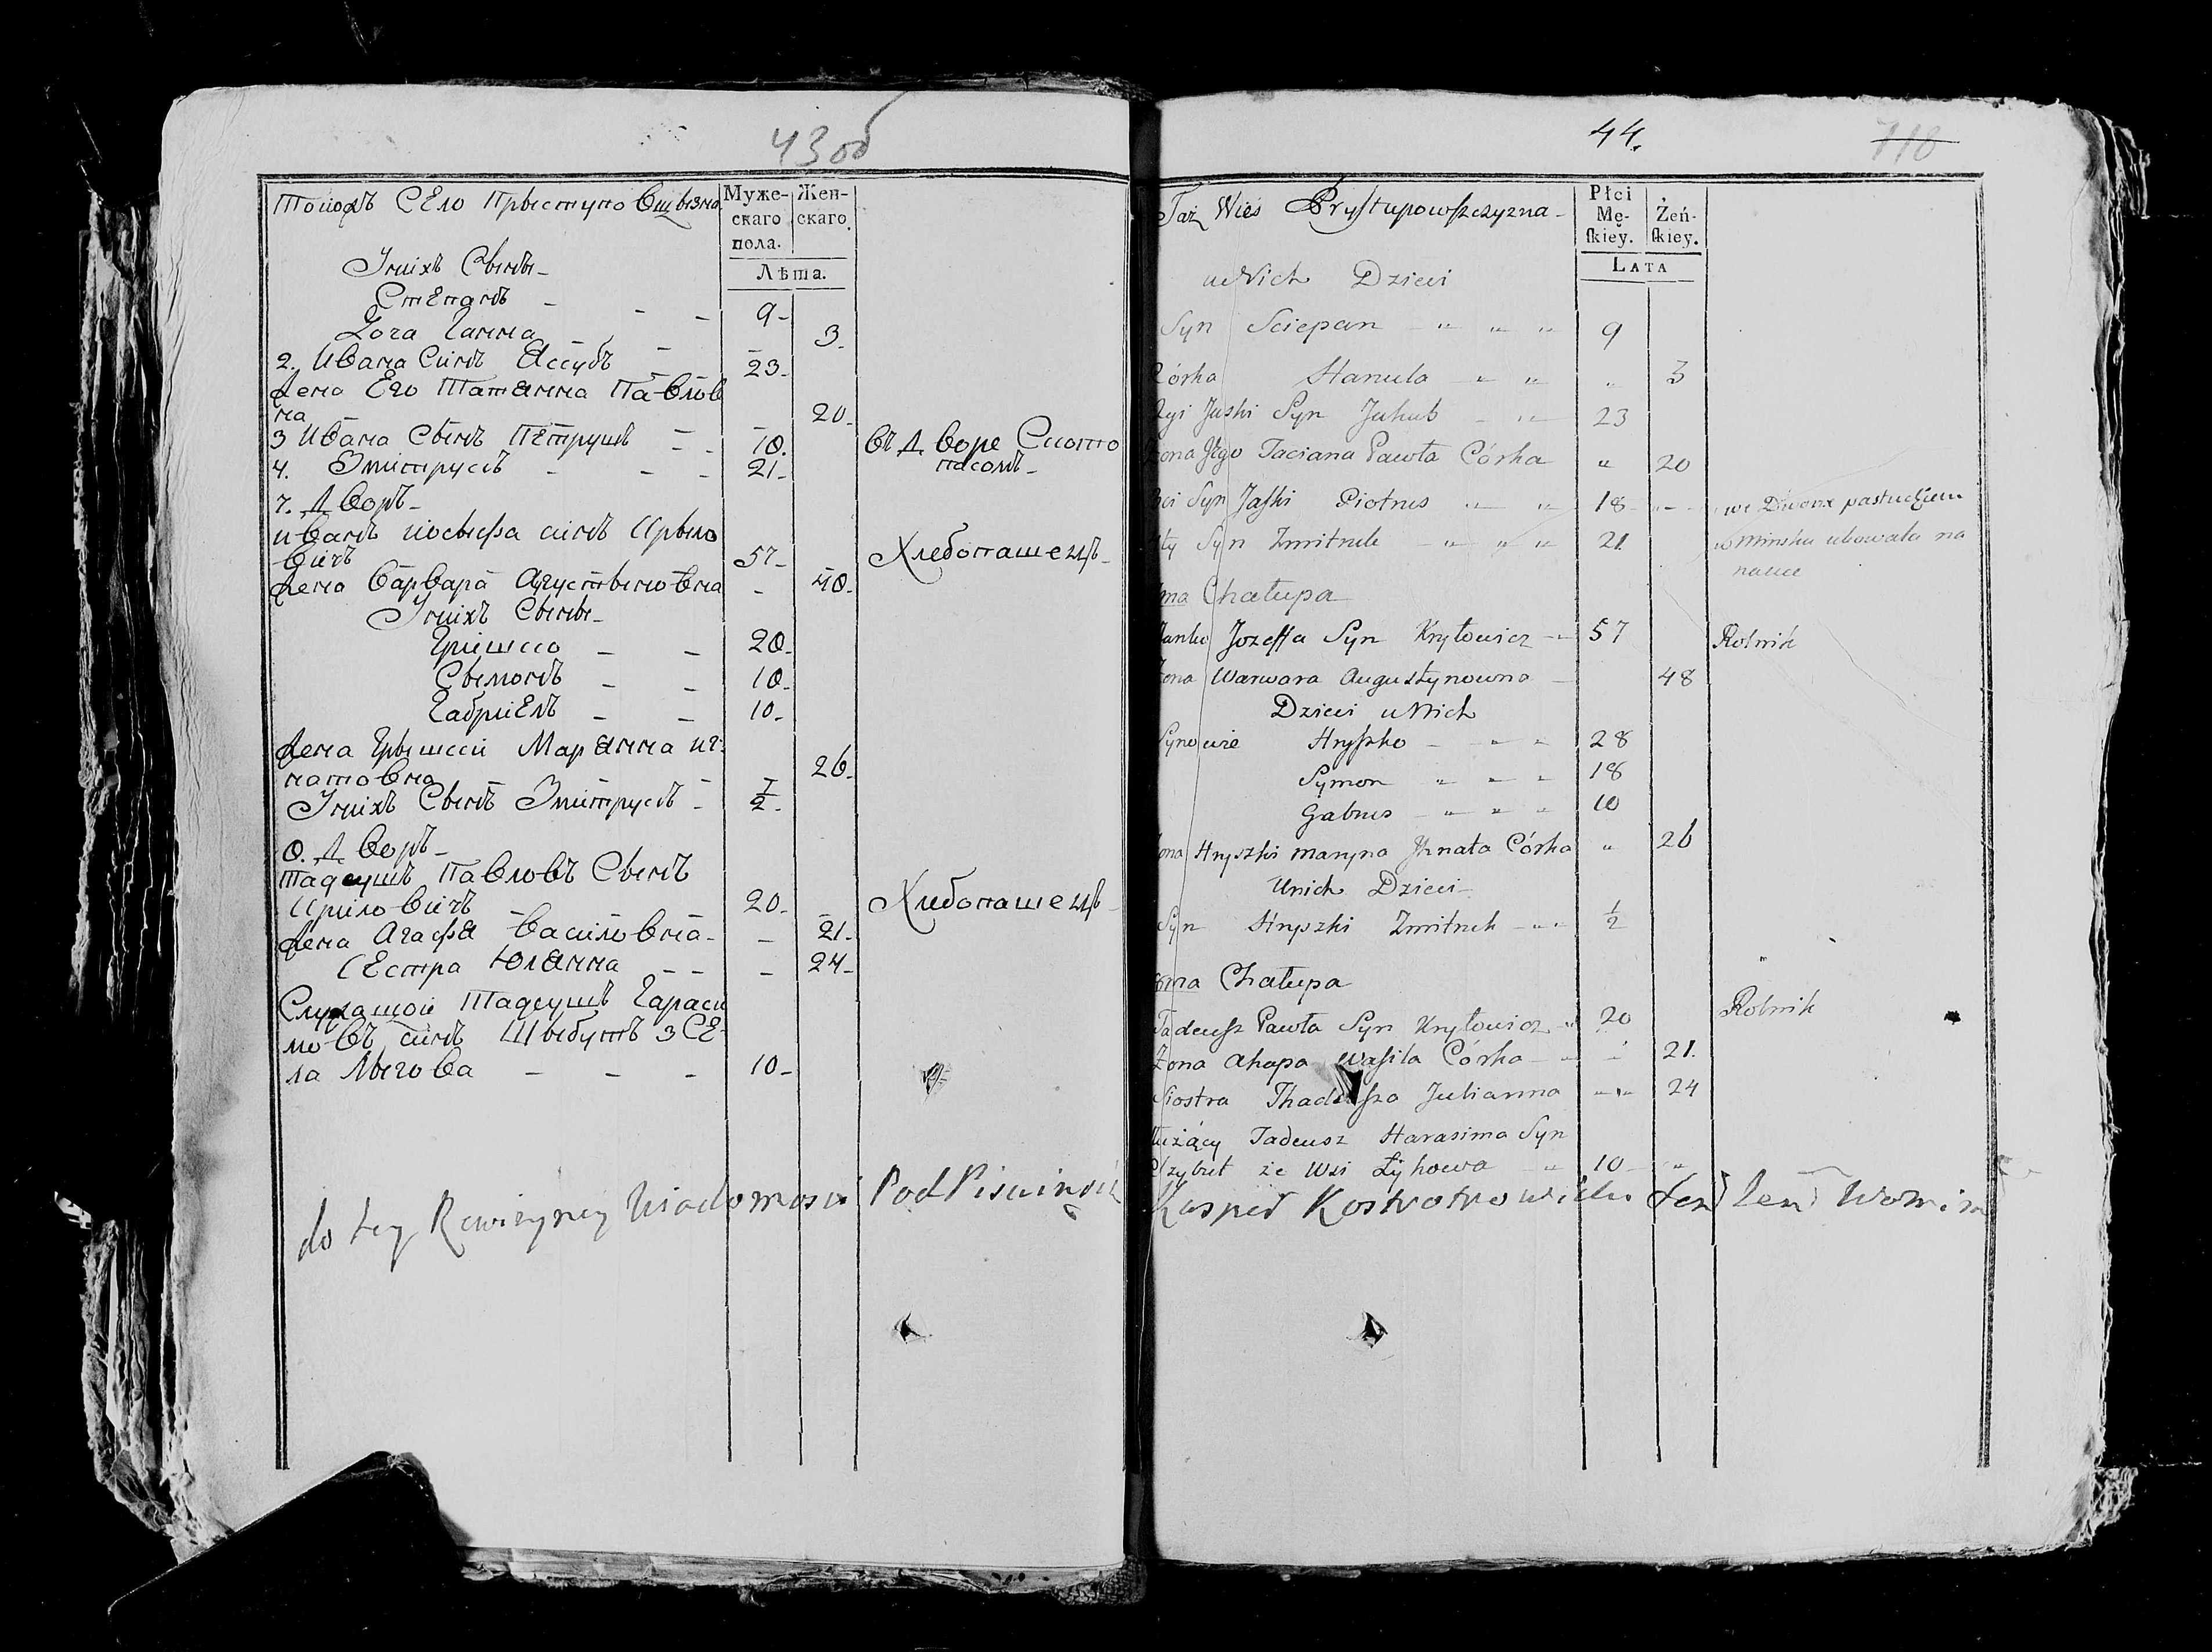 43 об
Тогожъ СЕло Прыступовщызна
Муже-
скаго
пола.
Жен-
скаго.
Лѣта.
Унихъ Сыны
СтЕпанъ - - - 9-
Доча Ганна - - - 3-
2. Ивана Синъ Яссубъ - 23-
Жена Его Татянна Павлов
на - - 20-
3 Ивана Сынъ ПЕтрушъ - - 18.
въ Дворе Ското
пасомъ-
4. Змитрусъ - - - 21-
7. Дворъ-
иванъ иосыфа синъ Крыло
вичъ 57-
Хлебопашецъ-
Жена Варвара Агустыновна - 48-
Унихъ Сыны-
Гришко - - 28-
Сымонъ - - 18-
ГабриЕлъ - - 10-
Жена Грышки Марянна иг-
натовна - - 26-
Унихъ Сынъ Змитрусъ - 1/2-
8. Дворъ-
Тадеушъ Павловъ Сынъ
Крилович - 20-
Хлебопашецъ-
Жена Агафя Василовна- - 21-
СЕстра Юлянна - - - 24-
Служащой Тадеушъ Гараси
мовъ синъ Шыбутъ з СЕ-
ла Лыгова - - - 10-
do tey Rewizyney Wiadomosci PodPisuięsię
44.
718
Taż Wieś Prystupowszczyzna-
Płci
Mę-
skiey.
Żeń-
skiey.
LATA
u Nich Dzieci
Syn Sciepan - " " " 9
Córka Hanula - " " " 3
Jaski Syn Jakub - " 23
Żona Jego Taciana Pawła Córka " 20
Syn Jaski Piotrus " " 18 - " -
we Dworze pastuchem
Syn Zmitruk - " " " 21
w Minsku na
nauce
Chałupa
Janko Jozeffa Syn Kryłowicz - " 57
Rolnik
Żona Warwara Augustynowna - 48
Dzieci u Nich
Synowie Hryszko - - " - 28
Symon " - " - 18
Gabrus - " " " 10
Żona Hryszki Maryna Jhnata Córka " 26
Unich Dzieci-
Syn Hryszki Zmitruk - " " 1/2
Chałupa
Tadeusz Pawła Syn Kryłowicz - " 20
Rolnik
Żona Ahapa Wasila Córka - " - 21.
Siostra Thadeusza Julianna - " " 24
Służący Tadeusz Harasima Syn
Szybut ze Wsi Łyhowa - " 10 - "
Kasper